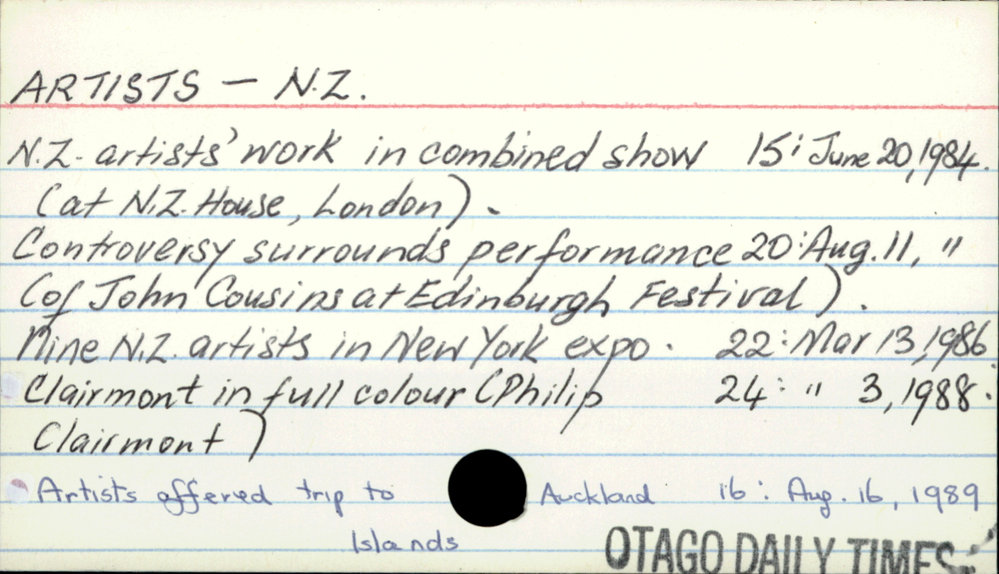 ARTISTS — N.Z.
N.Z. artists' work in combined show 15: June 20, 1984.
(at N.Z. House, London).
Controversy surrounds performance 20: Aug. 11, "
(of John Cousins at Edinburgh Festival).
Nine N.Z. artists in New York expo. 22: Mar 13, 1986
Clairmont in full colour (Philip 24: " 3, 1988.
Clairmont)
Artists offered trip to Auckland 16: Aug. 16, 1989
Islands
OTAGO DAILY TIMES